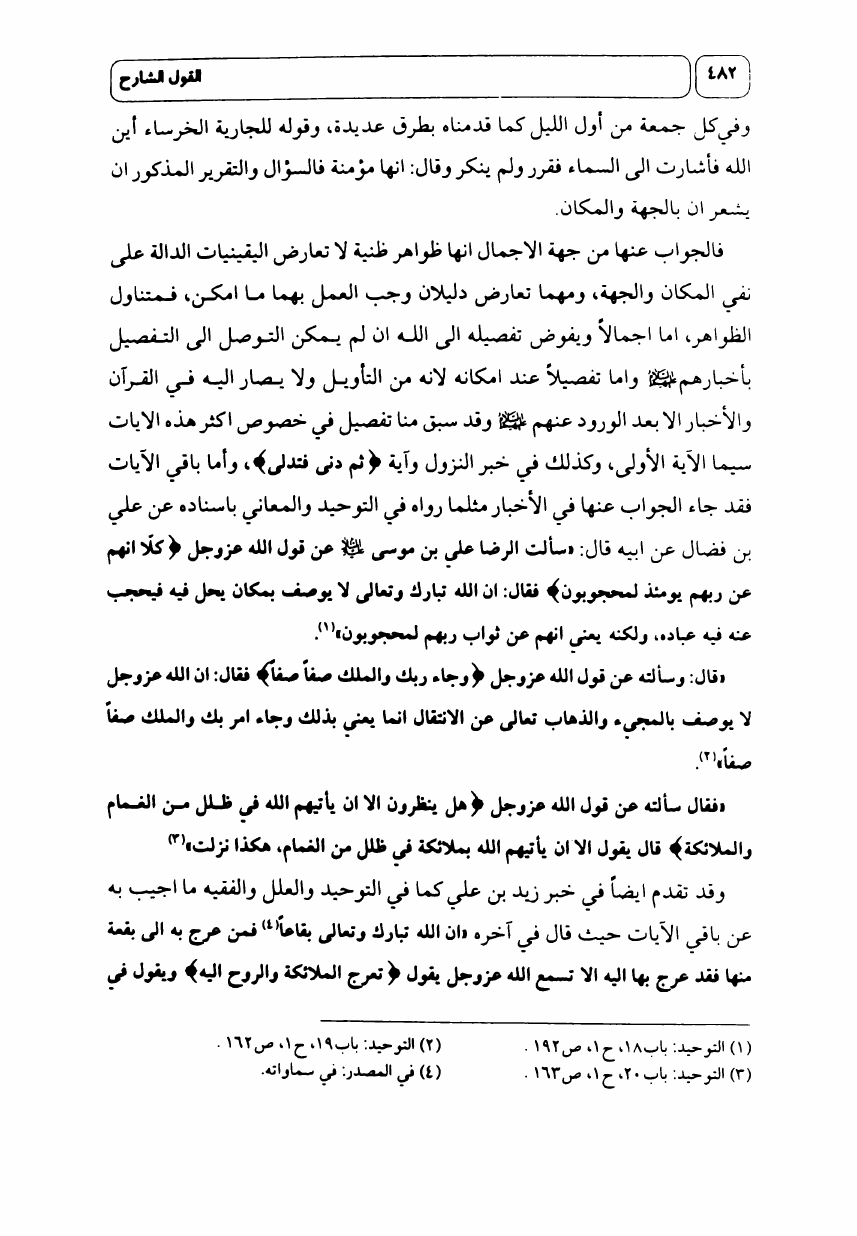 ٤٨٢
القول الشارح
وفي كل جمعة من أول الليل كما قدمناه بطرق عديدة، وقوله للجارية الخرساء أين
الله فأشارت الى السماء فقرر ولم ينكر وقال: انها مؤمنة فالسؤال والتقرير المذكور ان
يشعر ان بالجهة والمكان.
فالجواب عنها من جهة الاجمال انها ظواهر ظنية لا تعارض اليقينيات الدالة على
نفي المكان والجهة، ومهما تعارض دليلان وجب العمل بهما ما امكن، فمتناول
الظواهر، اما اجمالاً ويفوض تفصيله الى الله ان لم يمكن التوصل الى التفصيل
بأخبارهم واما تفصيلاً عند امكانه لانه من التأويل ولا يصار اليه في القرآن
والأخبار الا بعد الورود عنهم وقد سبق منا تفصيل في خصوص اكثر هذه الايات
سيما الآية الأولى، وكذلك في خبر النزول وآية ﴿ثم دنى فتدلى﴾، وأما باقي الآيات
فقد جاء الجواب عنها في الأخبار مثلما رواه في التوحيد والمعاني باسناده عن علي
بن فضال عن ابيه قال: «سألت الرضا علي بن موسى عن قول الله عزوجل ﴿كلّا انهم
عن ربهم يومئذ لمحجوبون﴾ فقال: ان الله تبارك وتعالى لا يوصف بمكان يحل فيه فيحجب
عنه فيه عباده، ولكنه يعني انهم عن ثواب ربهم لمحجوبون»(١).
«قال: وسألته عن قول الله عزوجل ﴿وجاء ربك والملك صفاً صفاً﴾ فقال: ان الله عزوجل
لا يوصف بالمجيء والذهاب تعالى عن الانتقال انما يعني بذلك وجاء امر بك والملك صفاً
صفاً»(٢).
«فقال سألته عن قول الله عزوجل ﴿هل ينظرون الا ان يأتيهم الله في ظلل من الغمام
والملائكة﴾ قال يقول الا ان يأتيهم الله بملائكة في ظلل من الغمام، هكذا نزلت»(٣)
وقد تقدم ايضاً في خبر زيد بن علي كما في التوحيد والعلل والفقيه ما اجيب به
عن باقي الآيات حيث قال في آخره «ان الله تبارك وتعالى بقاعاً(٤) فمن عرج به الى بقعة
منها فقد عرج بها اليه الا تسمع الله عزوجل يقول ﴿تعرج الملائكة والروح اليه﴾ ويقول في
(١) التوحيد: باب١٨، ح١، ص١٩٢ .
(٢) التوحيد: باب١٩، ح١، ص١٦٢ .
(٣) التوحيد: باب٢٠، ح١، ص١٦٣ .
(٤) في المصدر: في سماواته.